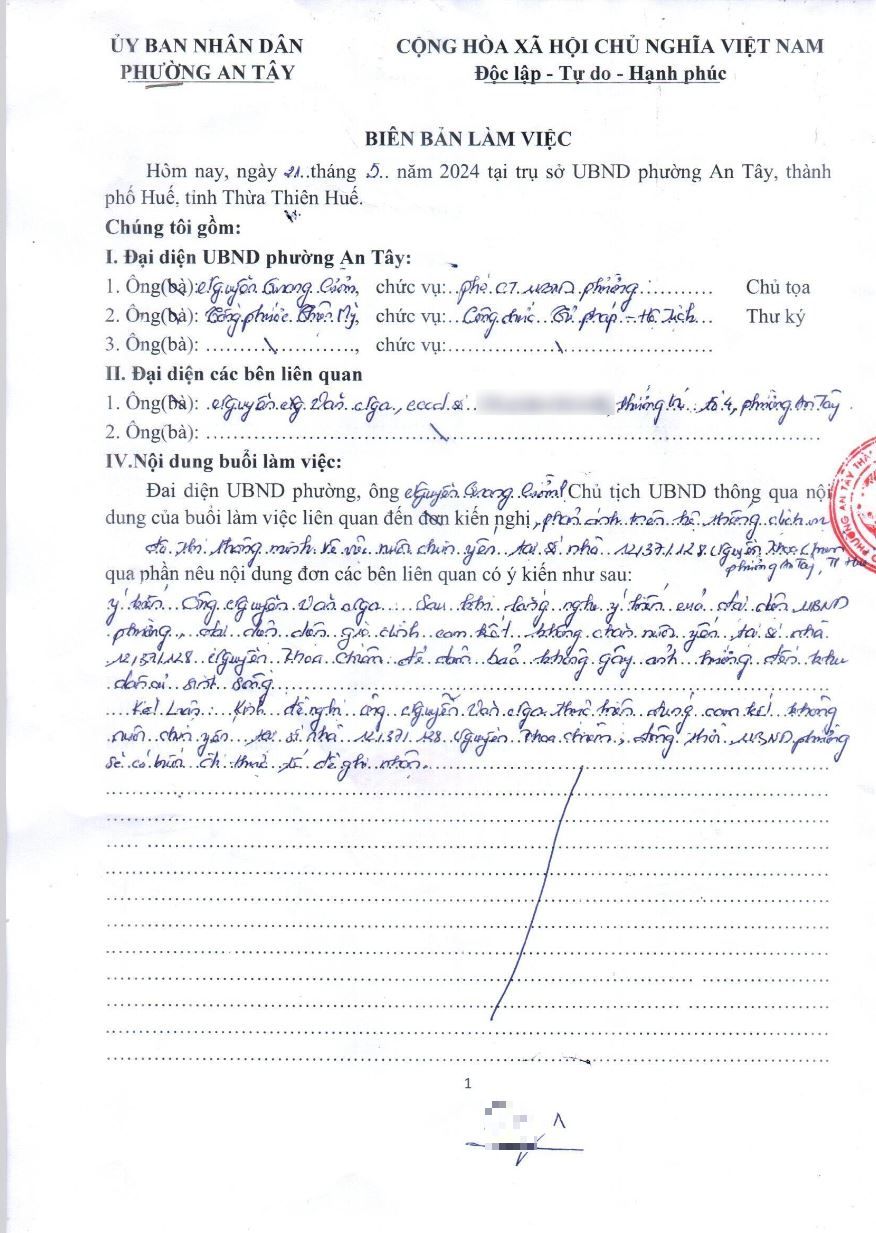 ỦY BAN NHÂN DÂN
PHƯỜNG AN TÂY
CỘNG HÒA XÃ HỘI CHỦ NGHĨA VIỆT NAM
Độc lập - Tự do - Hạnh phúc
BIÊN BẢN LÀM VIỆC
Hôm nay, ngày 21..tháng 5.. năm 2024 tại trụ sở UBND phường An Tây, thành
phố Huế, tỉnh Thừa Thiên Huế.
Chúng tôi gồm:
I. Đại diện UBND phường An Tây:
1. Ông(bà): Nguyễn Quang, chức vụ: phó CT UBND phường Chủ tọa
2. Ông(bà): chức vụ: Công chức Tư pháp - Hộ tịch Thư ký
3. Ông(bà): , chức vụ:
II. Đại diện các bên liên quan
1. Ông(bà): Nguyễn Văn Nga, cccd số thường trú tổ 4, phường An Tây
2. Ông(bà):
IV.Nội dung buổi làm việc:
Đai diện UBND phường, ông Nguyễn Quang Chủ tịch UBND thông qua nội
dung của buổi làm việc liên quan đến đơn kiến nghị, phản ánh trên hệ thống dịch vụ
đô thị thông minh về việc nuôi chim yến tại số nhà 12/371/128 Nguyễn Khoa Chiêm
phường An Tây, TP Huế
qua phần nêu nội dung đơn các bên liên quan có ý kiến như sau:
Ý kiến ông Nguyễn Văn Nga Sau khi lắng nghe ý kiến của đại diện UBND
phường, đại diện gia đình cam kết không chăn nuôi yến tại số nhà
12/371/128 Nguyễn Khoa Chiêm để đảm bảo không gây ảnh hưởng đến khu
dân cư sinh sống
Kết luận: Kính đề nghị ông Nguyễn Văn Nga thực hiện đúng cam kết không
nuôi chim yến tại số nhà 12/371/128 Nguyễn Khoa Chiêm, đồng thời, UBND phường
sẽ có buổi đi thực tế để ghi nhận.
1